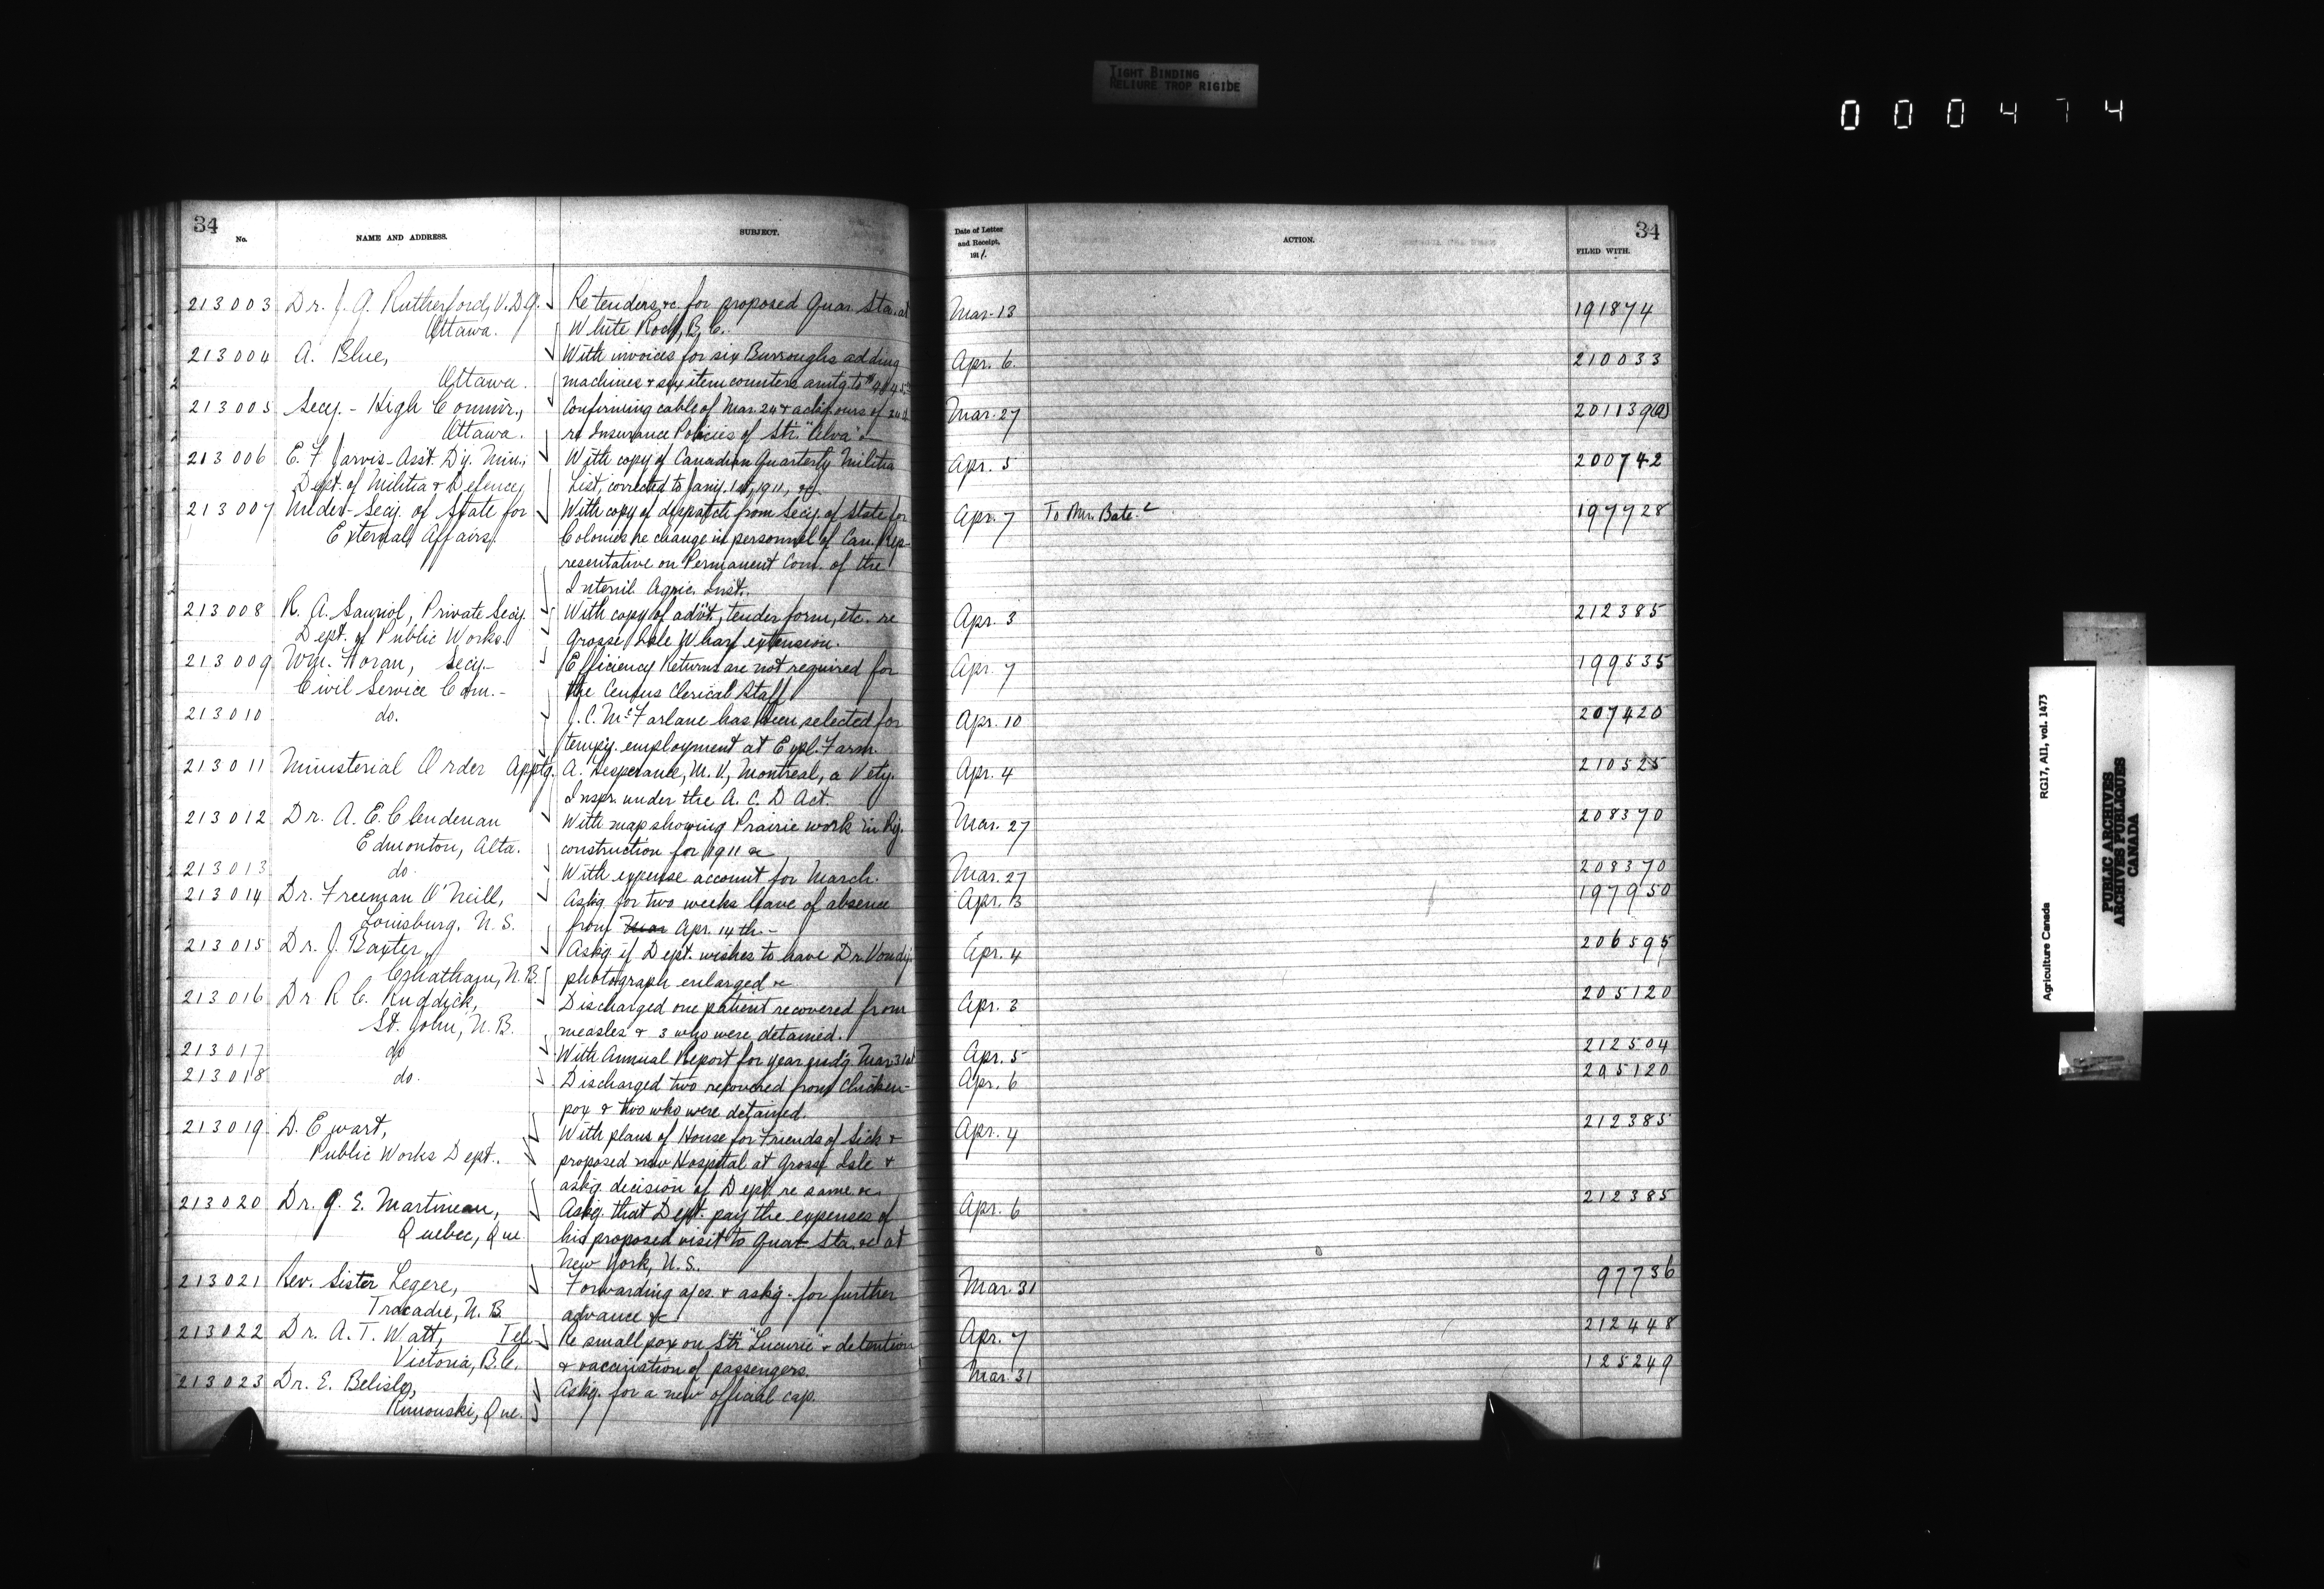 TIGHT BINDING
RELIURE TROP RIGIDE
000474
34
No. NAME AND ADDRESS. SUBJECT.
213003 Dr. J. G. Rutherford, V.D.G. Re tenders &c. for proposed Quar. Sta. at
Ottawa. White Rock, B.C.
213004 A. Blue, With invoices for six Burroughs adding
Ottawa. machines & six item counters amtg to
213005 Secy. - High Commr., Confirming cable of Mar. 24 & ackg ours of 24th
Ottawa. re Insurance Policies of Str. "Alva" &
213006 E. F. Jarvis - Asst. Dy. Min., With copy of Canadian Quarterly Militia
Dept. of Militia & Defence, List, corrected to Jany. 1st, 1911, &c.
213007 Under-Secy. of State for With copy of dispatch from Secy. of State for
External Affairs. Colonies re change in personnel of Can. Rep-
resentative on Permanent Com. of the
Internl. Agric. Inst.
213008 R. A. Sauriol, Private Secy. With copy of advt., tender form, etc. re
Dept. of Public Works. Grosse Isle Wharf extension.
213009 Wm. Foran, Secy.- Efficiency Returns are not required for
Civil Service Com.- the Census Clerical Staff
213010 do. J. C. McFarlane has been selected for
tempy. employment at Expl. Farm.
213011 Ministerial Order Apptg. A. Lesperance, M.V., Montreal, a Vety.
Inspr. under the A. C. D Act.
213012 Dr. A. E. Clendenan With map showing Prairie work in Ry.
Edmonton, Alta. construction for 1911 &c
213013 do. With expense account for March.
213014 Dr. Freeman O'Neill, Askg for two weeks leave of absence
Louisburg, N.S. from Mar Apr. 14th.-
213015 Dr. J. Baxter, Askg if Dept. wishes to have Dr. Vondy's
Chatham, N.B. photograph enlarged &c
213016 Dr R. C. Ruddick, Discharged one patient recovered from
St. John, N.B. measles & 3 who were detained.
213017 do With Annual Report for year end'g Mar 31st
213018 do. Discharged two recovered from Chicken-
pox & two who were detained.
213019 D. Ewart, With plans of House for Friends of Sick &
Public Works Dept. proposed new Hospital at Grosse Isle &
askg. decision of Dept. re same &c.
213020 Dr. G. E. Martineau, Askg. that Dept. pay the expenses of
Quebec, Que. his proposed visit to Quar. Sta. &c at
New York, U.S.
213021 Rev. Sister Legere, Forwarding a/cs. & askg- for further
Tracadie, N.B. advance &c
213022 Dr. A. T. Watt, Tel. Re small pox on Str. "Luceric" & detention
Victoria, B.C. & vaccination of passengers.
213023 Dr. E. Belisle, Askg. for a new official cap.
Rimouski, Que.
34
Date of Letter
and Receipt,
1911. ACTION. FILED WITH.
Mar. 13 191874
Apr. 6. 210033
Mar. 27 201139(a)
Apr. 5 200742
Apr. 7 To Mr. Bate. 197728
Apr. 3 212385
Apr. 7 199535
Apr. 10 207420
Apr. 4 210525
Mar. 27 208370
Mar. 27 208370
Apr. 13 197950
Apr. 4 206595
Apr. 3 205120
Apr. 5 212504
Apr. 6 205120
Apr. 4 212385
Apr. 6 212385
Mar. 31 97736
Apr. 7 212448
Mar. 31 125249
Agriculture Canada RG17, AII, vol. 1473
PUBLIC ARCHIVES
ARCHIVES PUBLIQUES
CANADA